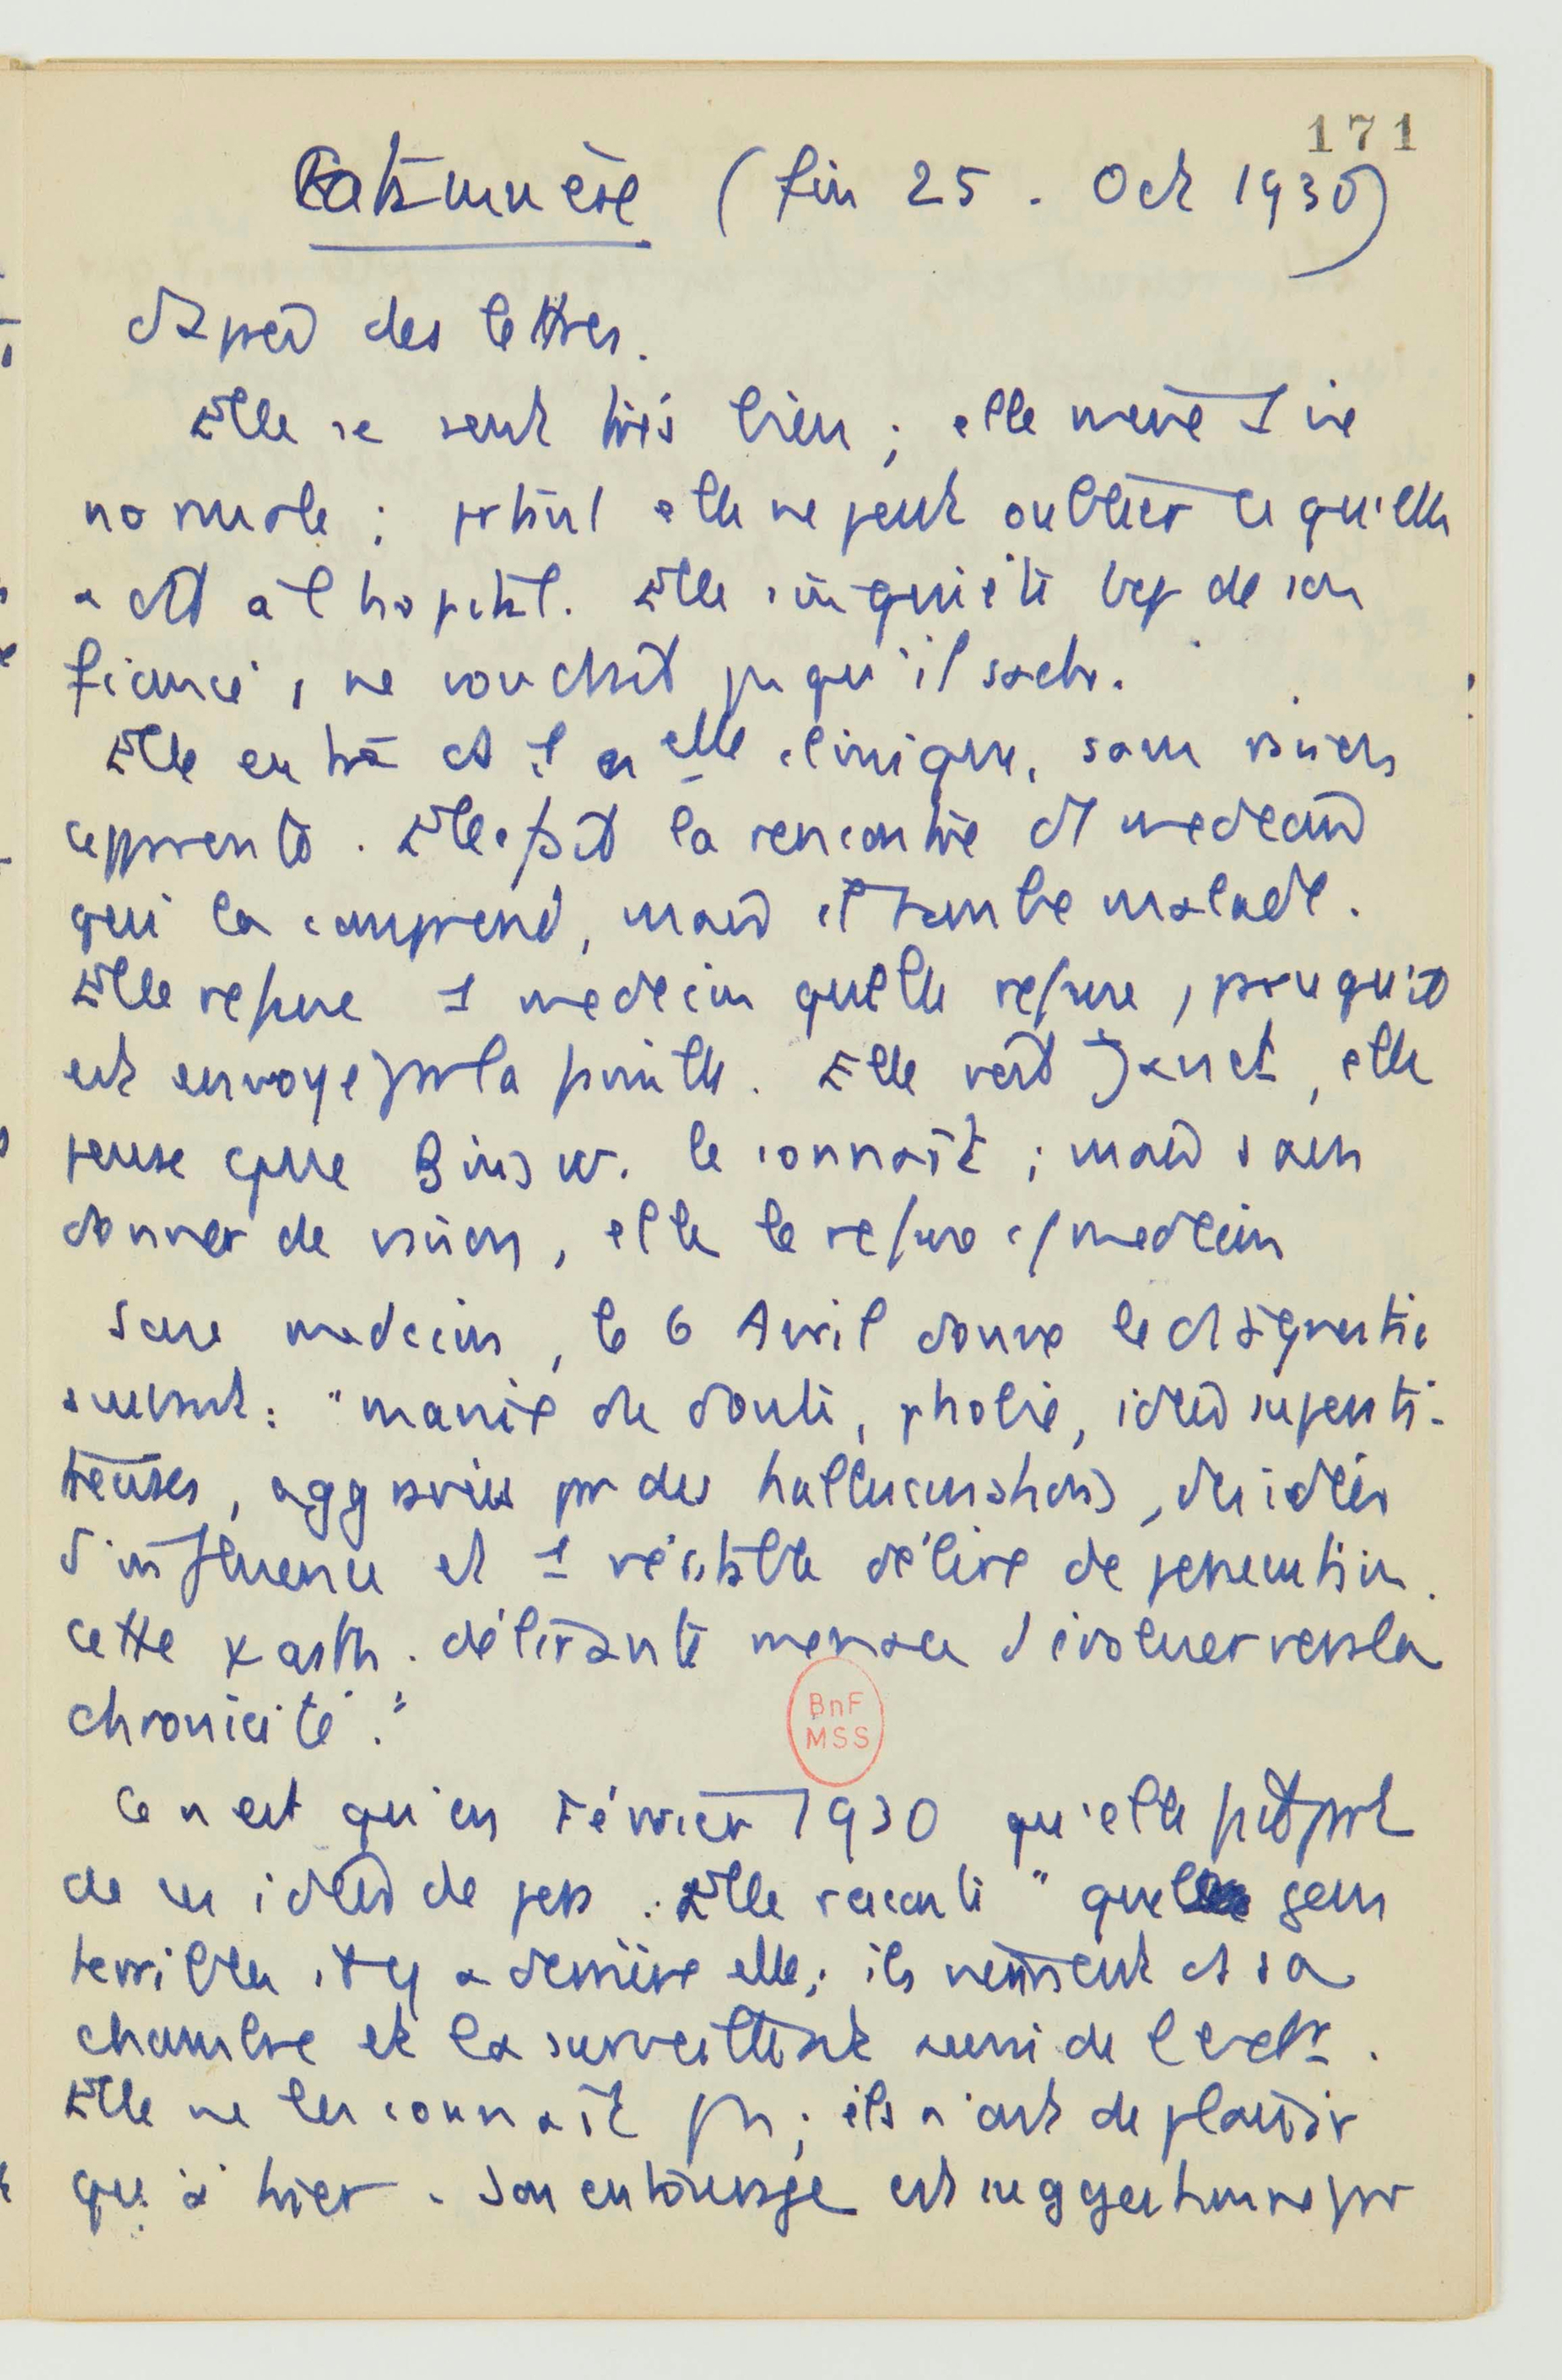 171
Catamnèse (fin 25. Oct 1930)
D'après des lettres.
Elle se sent très bien ; elle mène 1 vie
normale ; prtant elle ne peut oublier ce qu'elle
a dit à l'hopital. Elle s'inquiète bcp de son
fiancé, ne voudrait ps qu'il sache.
Elle entra ds 1 clinique, sans raisons
apparentes. Elle fait la rencontre d'1 médecin
qui la comprend, mais il tombe malade.
Elle refuse 1 medecin qu'elle refuse, parcequ'il
est envoyé par la famille. Elle voit Janet, elle
pense que Binsw. le connaît ; mais sans
donner de raisons, elle le refuse c/ médecin
Sans medecin, le 6 Avril donne le diagnostic
suivant : "manie du doute, phobie, idées supersti-
tieuses, aggravées par des hallucinations, des idées
d'influence et 1 véritable délire de persécution.
Cette asth. délirante menace d'évoluer vers la
chronicité."
Ce n'est qu'en Février 1930 qu'elle fait part
de ses idées de pers. Elle raconte "que gens
terribles il y a derrière elle ; ils viennent ds sa
chambre et la surveillent aussi de l'extr.
Elle ne les connaît ps ; ils n'ont de plaisir
qu'à tuer. Son entourage est suggestionné par
BnF
MSS